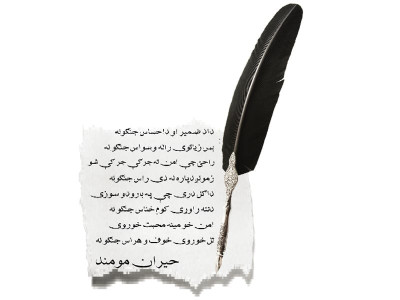 دا د ضمیر او د احساس جنګونه
بس زیاتوي راته وسواس جنګونه
راځئ چې امن ته جرګې جرګې شو
زمونږ دپاره نه دي راس جنګونه
دا ګل درې چې په بارودو سوزي
دلته راوړي کوم خناس جنګونه
امن خو مینه محبت خوروي
تل خوروي خوف و هراس جنګونه
حیران مومند